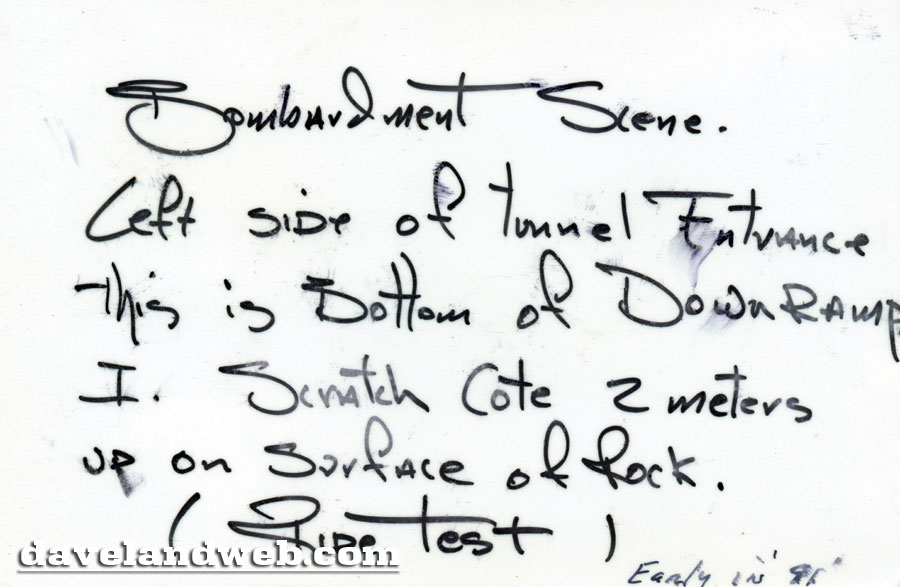 Bombardment Scene.
Left side of tunnel Entrance
This is Bottom of Down Ramp
I. Scratch Cote 2 meters
up on Surface of Rock.
( Ride Test )
davelandweb.com
Early in